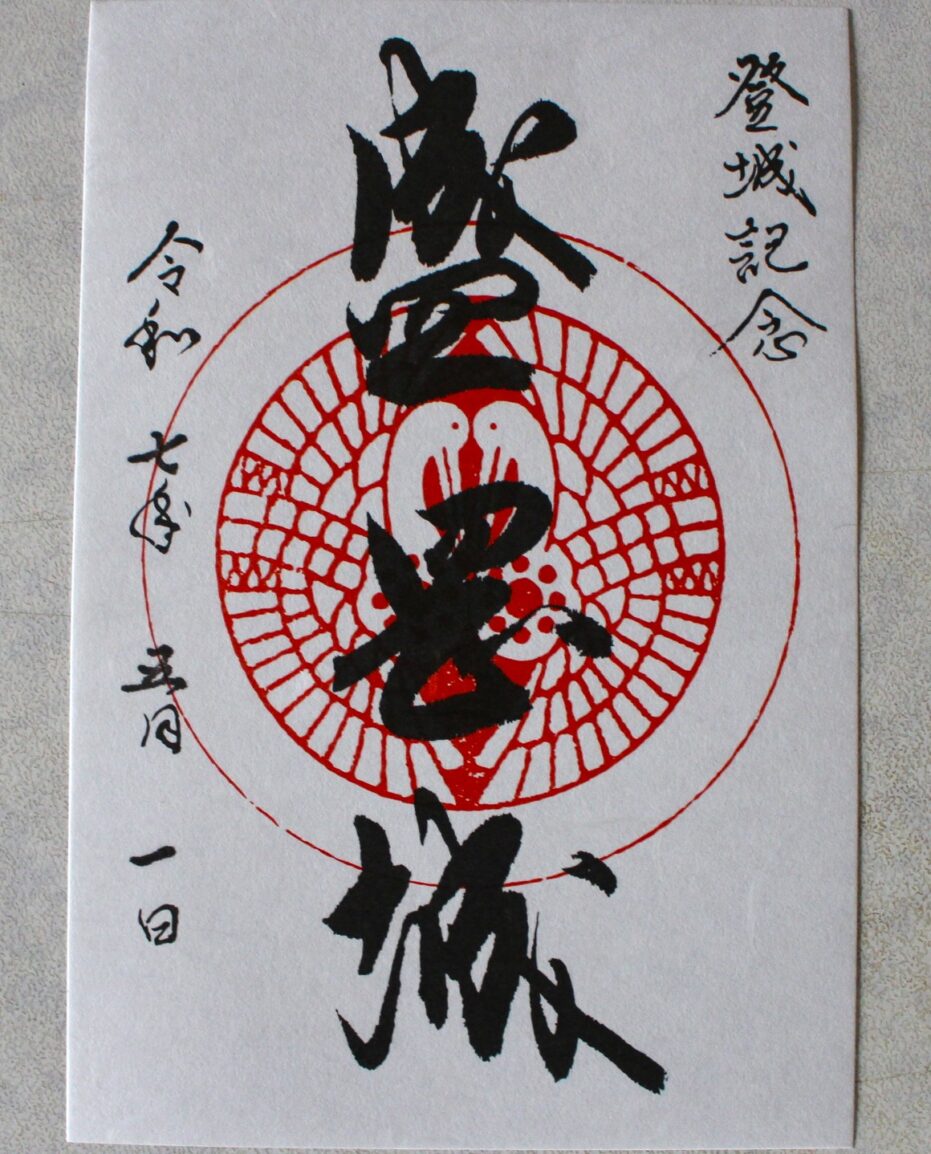 登城記念
盛岡城
令和七年五月一日